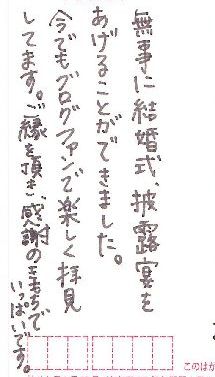 無事に結婚式、披露宴を
あげることができました。
今でもブログファンで楽しく拝見
してます。ご縁を頂き、感謝のきもちで
いっぱいです。
このはが